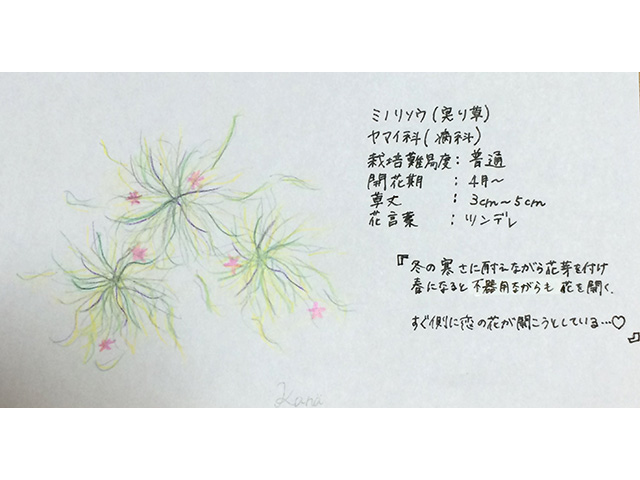 ミノリソウ(実り草)
ヤマイ科(病科)
栽培難易度：普通
開花期　：4月～
草丈　：3cm～5cm
花言葉　：ツンデレ
『冬の寒さに耐えながら花芽を付け
春になると不器用ながらも花を開く.
すぐ側に恋の花が開こうとしている…♡
』
Kana